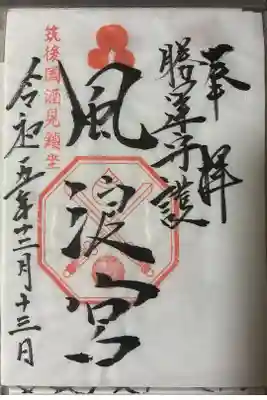 奉拝
勝運守護
風浪宮
筑後国酒見鎮坐
令和五年十二月十三日